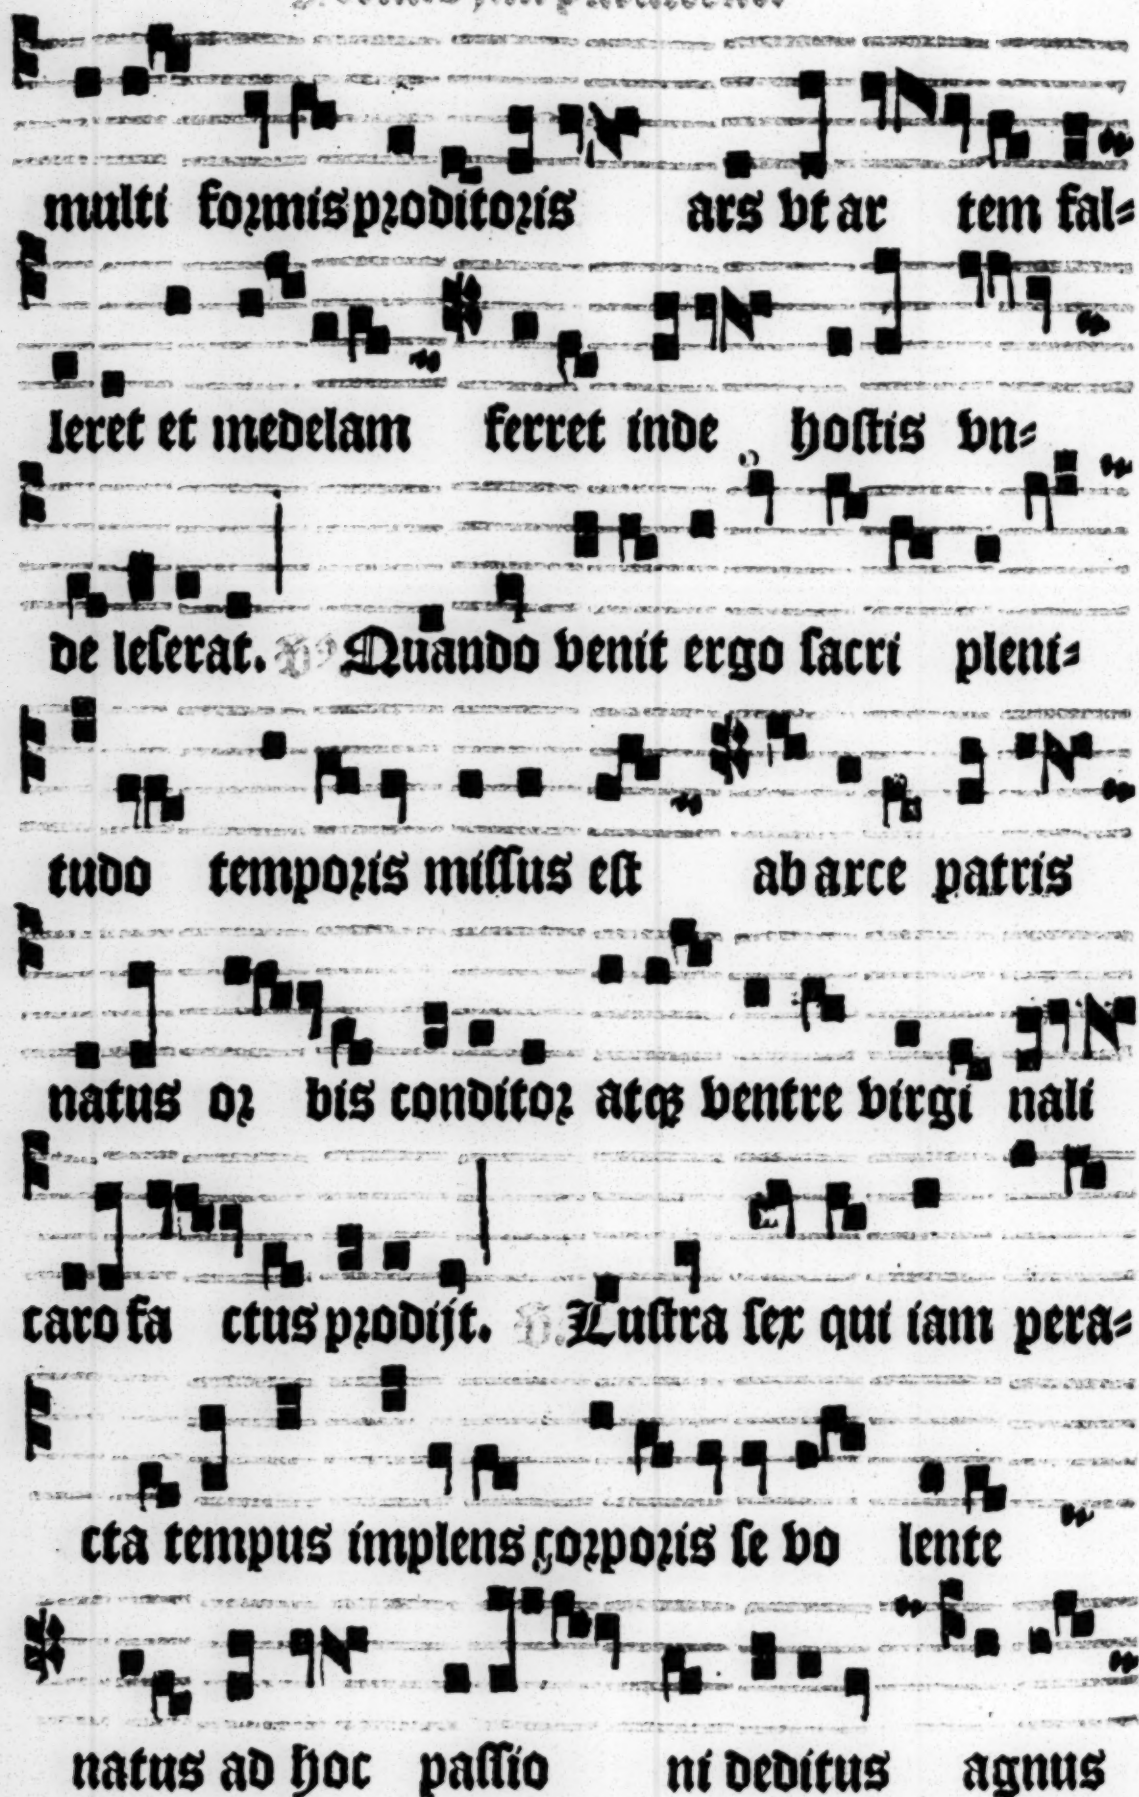 multi formis proditoris ars vt ar tem fal=
leret et medelam ferret inde hostis vn=
de leserat. Quando venit ergo sacri pleni=
tudo temporis missus est ab arce patris
natus or bis conditor atqꝫ ventre virgi nali
caro fa ctus prodijt. Lustra sex qui iam pera=
cta tempus implens corporis se vo lente
natus ad hoc passio ni deditus agnus